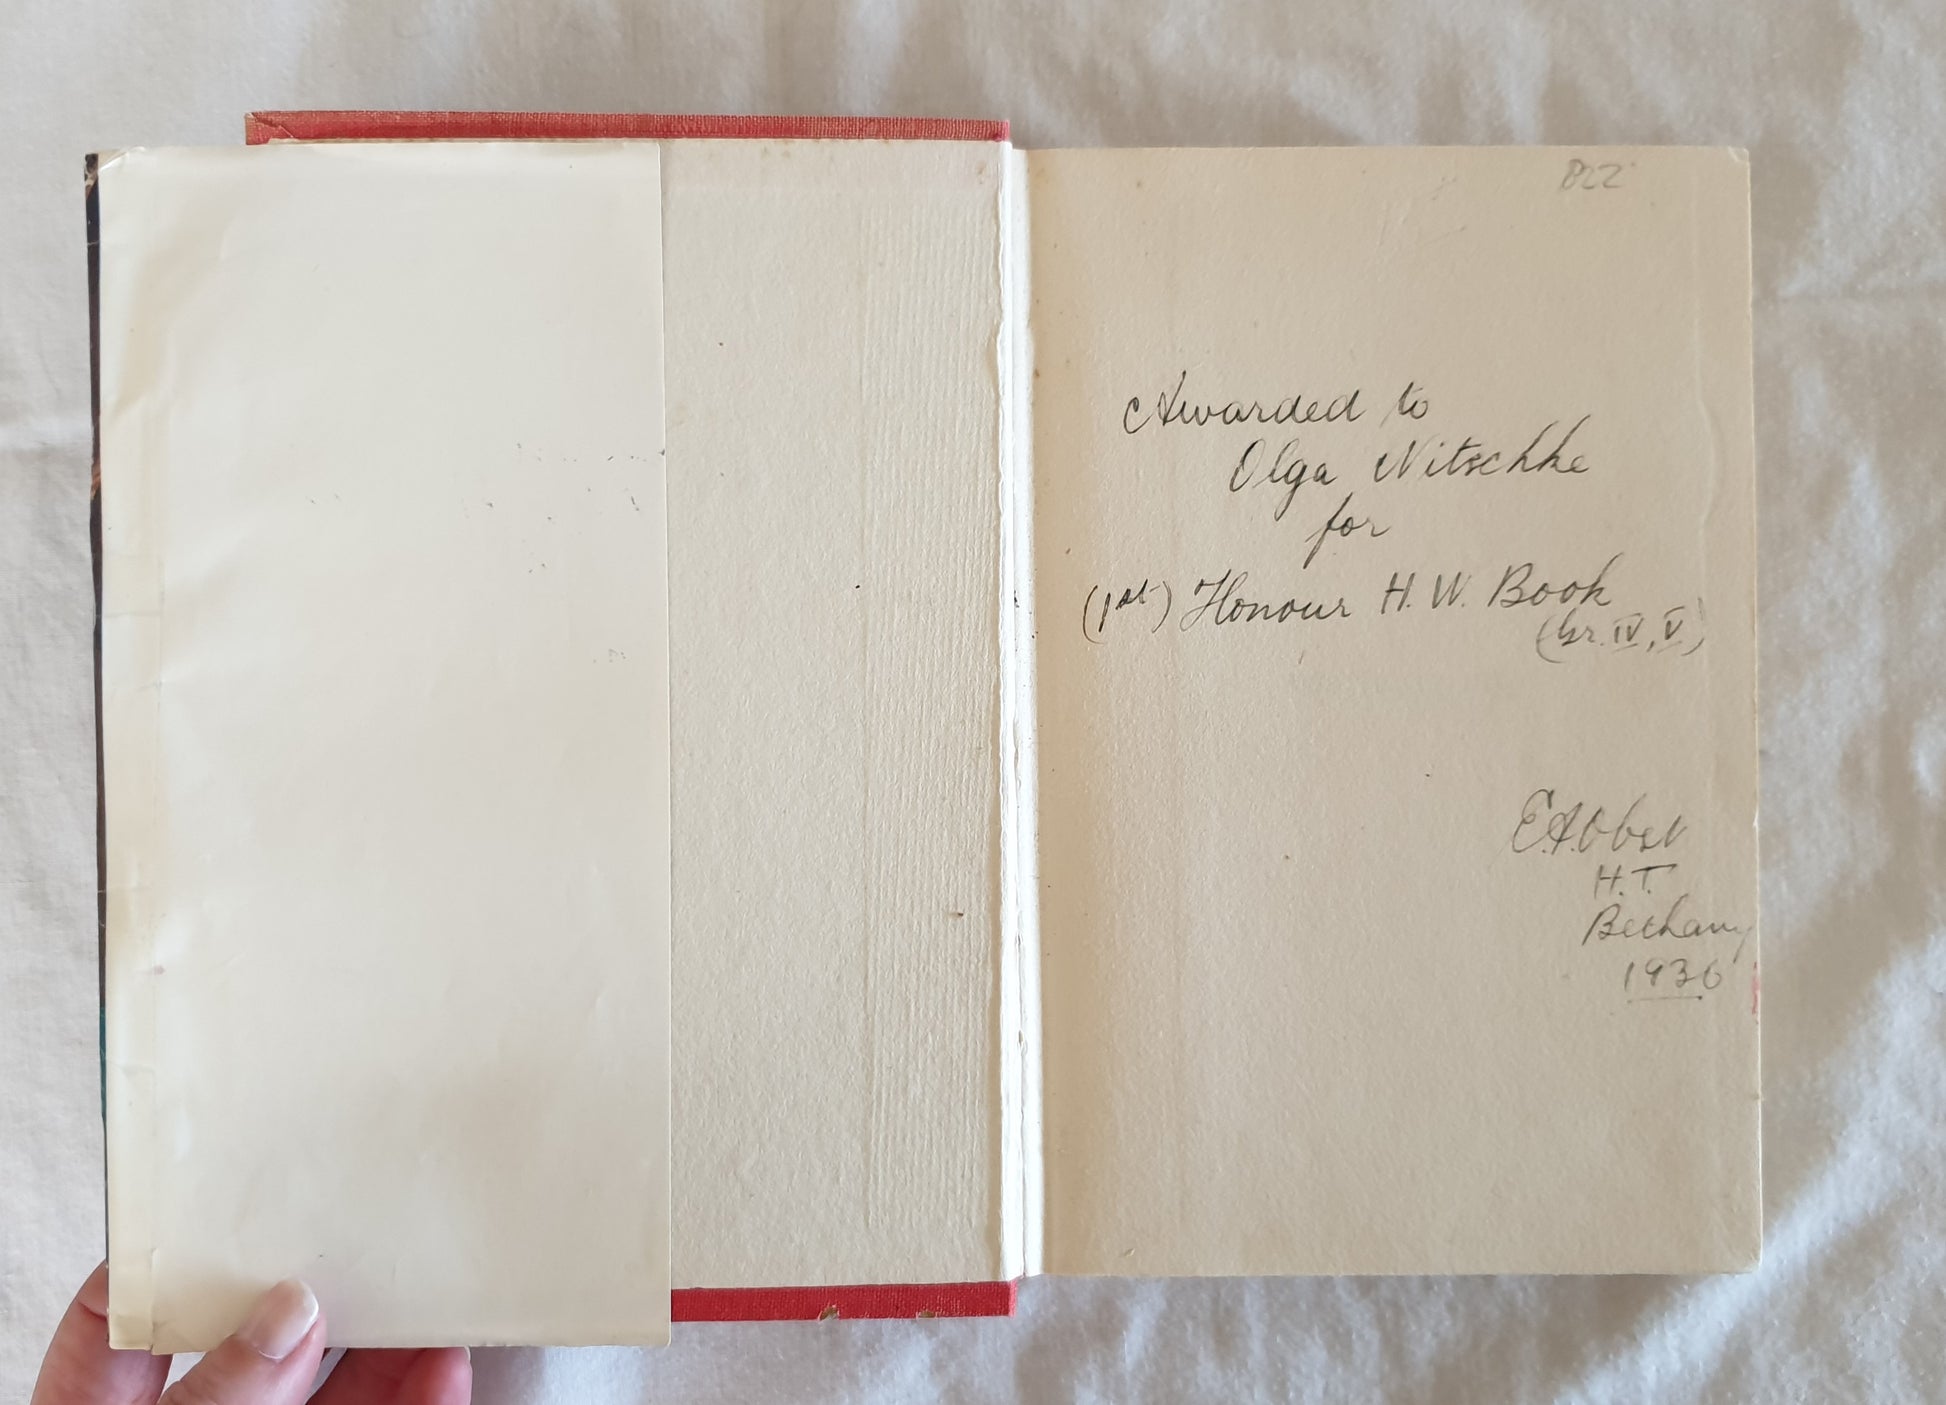 822
Awarded to
Olga Nitschke
for
(1st) Honour H. W. Book
(Gr. IV, V.)
E.A. Obst
H.T.
Bethany
1936